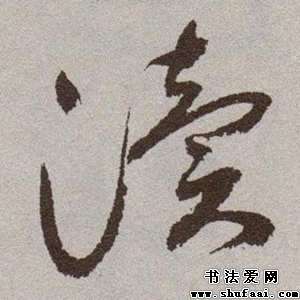 渎
书法爱网
www.shufaai.com